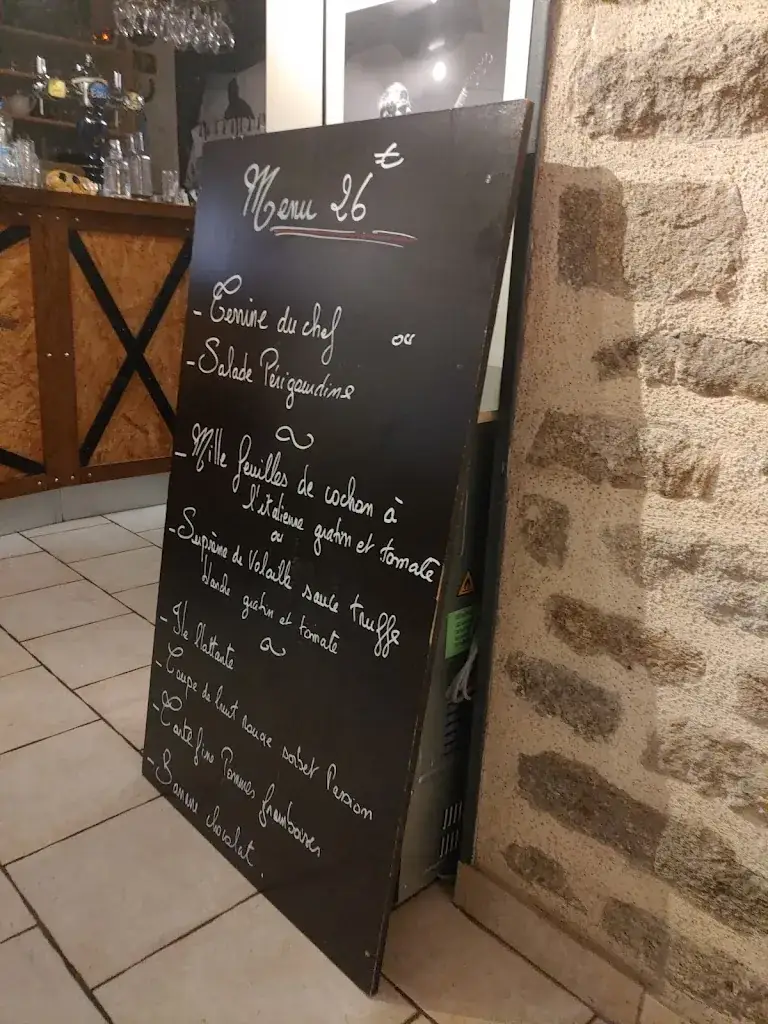 Menu 26 €
- Terrine du chef
ou
- Salade Périgourdine
~
- Mille feuilles de cochon à
l'italienne gratin et tomate
ou
- Suprême de Volaille sauce truffe
blanche gratin et tomate
~
- Ile flottante
- Coupe de fruit rouge sorbet Passion
- Tarte fine Pommes framboises
- Banane chocolat.